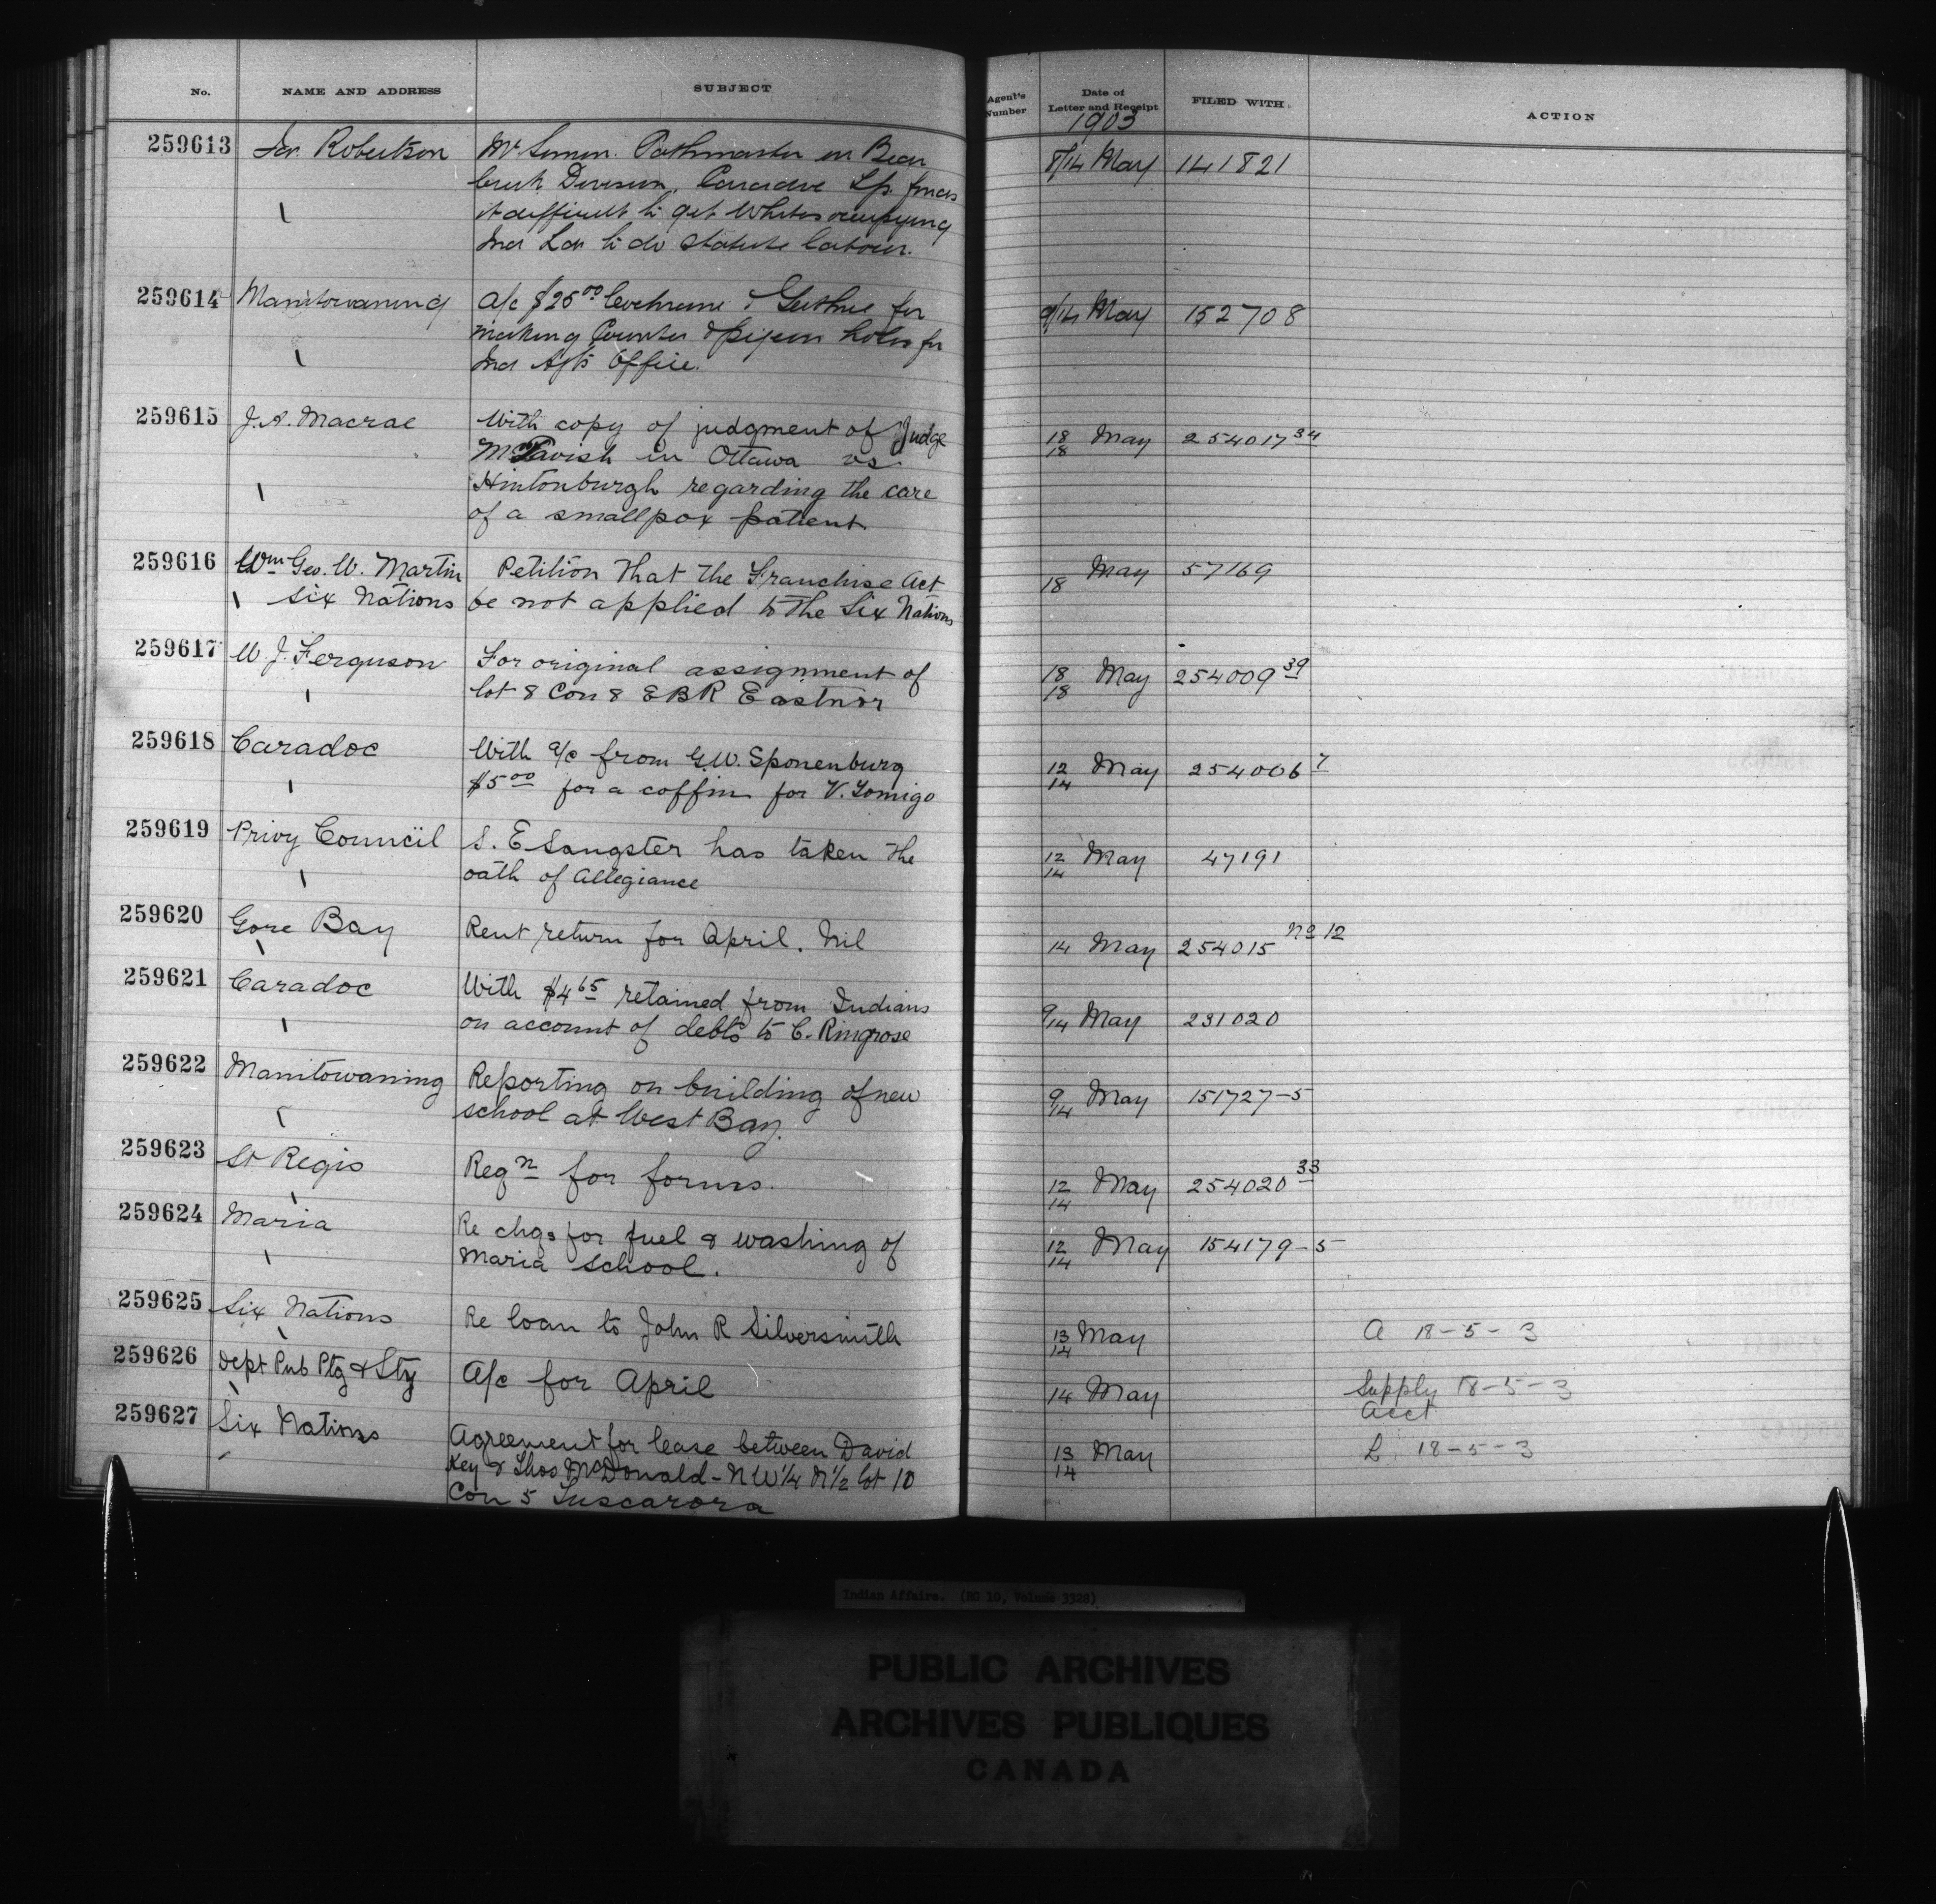 No. NAME AND ADDRESS SUBJECT Agent's Number Date of Letter and Receipt FILED WITH ACTION
1903
259613 Jas. Robertson Mr Simon Pathmaster in Bear 8/14 May 141821
Creek Division, Caradoc Tp. finds
it difficult to get Whites occupying
Ind Lds to do statute labour.
259614 Manitowaning a/c $25 00 Cochrane & Guthrie for 9/14 May 152708
making Counter & pigeon holes for
Ind Agts Office.
259615 J. A. Macrae With copy of judgment of Judge 18/18 May 254017 34
McTavish in Ottawa vs.
Hintonburgh regarding the care
of a smallpox patient.
259616 Wm Geo. W. Martin Petition that the Franchise Act 18 May 57169
Six Nations be not applied to the Six Nations
259617 W. J. Ferguson For original assignment of 18/18 May 254009 39
lot 8 Con 8 E B R Eastnor
259618 Caradoc With a/c from G.W. Sponenburg 12/14 May 254006 7
$5 00 for a coffin for V. Tomigo
259619 Privy Council S. E Sangster has taken the 12/14 May 47191
oath of Allegiance
259620 Gore Bay Rent return for April. Nil 14 May 254015 No 12
259621 Caradoc With $4 65 retained from Indians 9/14 May 231020
on account of debts to C. Ringrose
259622 Manitowaning Reporting on building of new 9/14 May 151727-5
school at West Bay.
259623 St Regis Reqn for forms. 12/14 May 254020 33
259624 Maria Re chgs for fuel & washing of 12/14 May 154179-5
Maria School.
259625 Six Nations Re loan to John R Silversmith 13/14 May A 18-5-3
259626 Dept Pub Ptg & Sty A/c for April 14 May Supply 18-5-3
Acct
259627 Six Nations Agreement for lease between David 13/14 May L 18-5-3
Key & Thos McDonald - N W 1/4 N 1/2 lot 10
Con 5 Tuscarora
Indian Affairs. (RG 10, Volume 3328)
PUBLIC ARCHIVES
ARCHIVES PUBLIQUES
CANADA